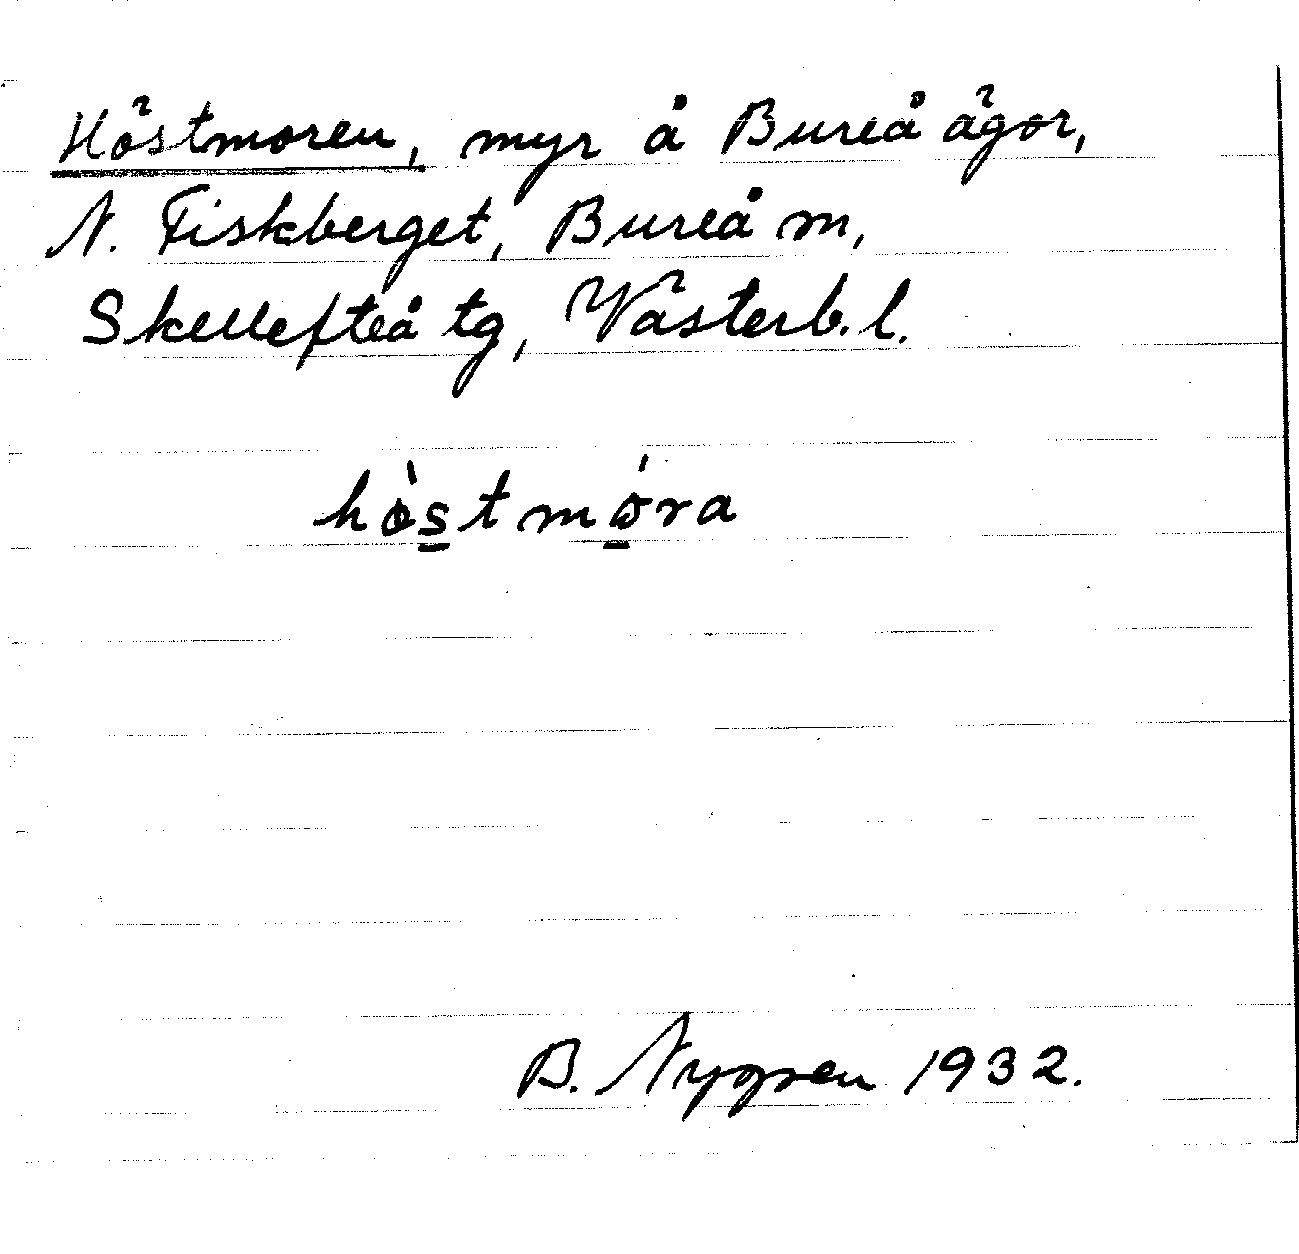 Höstmoren, myr å Bureå ägor,
N. Fiskberget, Bureå m,
Skellefteå tg, Västerb. l.
hòstmóra
B. Nygren 1932.